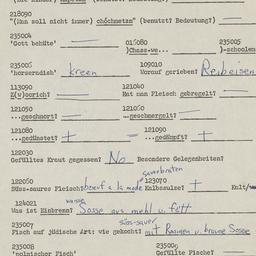 218090
"(Man soll nicht immer) chóchmetzn" (benutzt? Bedeutung?)
235004 015080 235005
'Gott behüte' )Chass-we... )-schoolem
235006 109010
'horseradish' Kreen Worauf gerieben? Reibeisen
113090 121040
E(y)borich? Hat man Fleisch gebregelt?
121050 121060
...geschmort? ...geschmorgelt?
121080 121090
...gedünstet? + ...gedämpft? +
122030
Gefülltes Kraut gegessen? No Besondere Gelegenheiten?
sauerbraten
122060 123070
Süss-saures Fleisch? boeuf a la mode Kalbssulze? + Kult/
124021 weisse
Was ist Einbrenn? Sosse aus mehl u. fett
235007 süss-sauer
Fisch auf jüdische Art: wie gekocht? mit Rosinen u. braune Sosse
235008 235009
'polnischer Fisch' Gefüllte Fische?